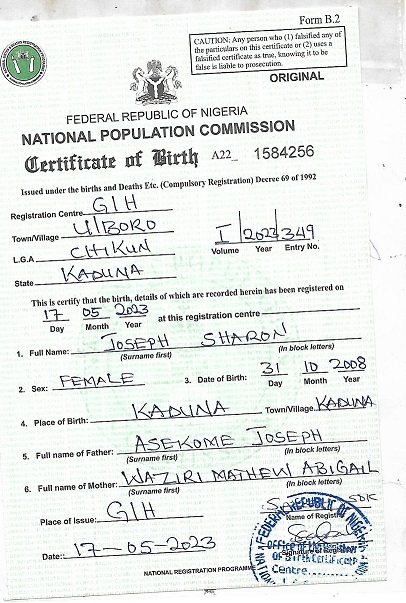 Form B.2
CAUTION: Any person who (1) falsified any of
the particulars on this certificate or (2) uses a
falsified certificate as true, knowing it to be
false is liable to prosecution.
ORIGINAL
FEDERAL REPUBLIC OF NIGERIA
NATIONAL POPULATION COMMISSION
Certificate of Birth A22_ 1584256
Issued under the births and Deaths Etc. (Compulsory Registration) Decree 69 of 1992
Registration Centre GIH
Town/Village U/BORO
L.G.A CHIKUN
State KADUNA
I 2023 349
Volume Year Entry No.
This is certify that the birth, details of which are recorded herein has been registered on
17 05 2023 at this registration centre
Day Month Year
1. Full Name: JOSEPH SHARON
(Surname first) (In block letters)
2. Sex: FEMALE 3. Date of Birth: 31 10 2008
Day Month Year
4. Place of Birth: KADUNA Town/Village KADUNA
5. Full name of Father: ASEKOME JOSEPH
(Surname first) (In block letters)
6. Full name of Mother: WAZIRI MATHEW ABIGAIL
(Surname first) (In block letters)
Place of Issue: GIH
Name of Registrar
Signature of Registrar
Date: 17-05-2023
FEDERAL REPUBLIC OF NIGERIA
Centre
NATIONAL REGISTRATION PROGRAMME